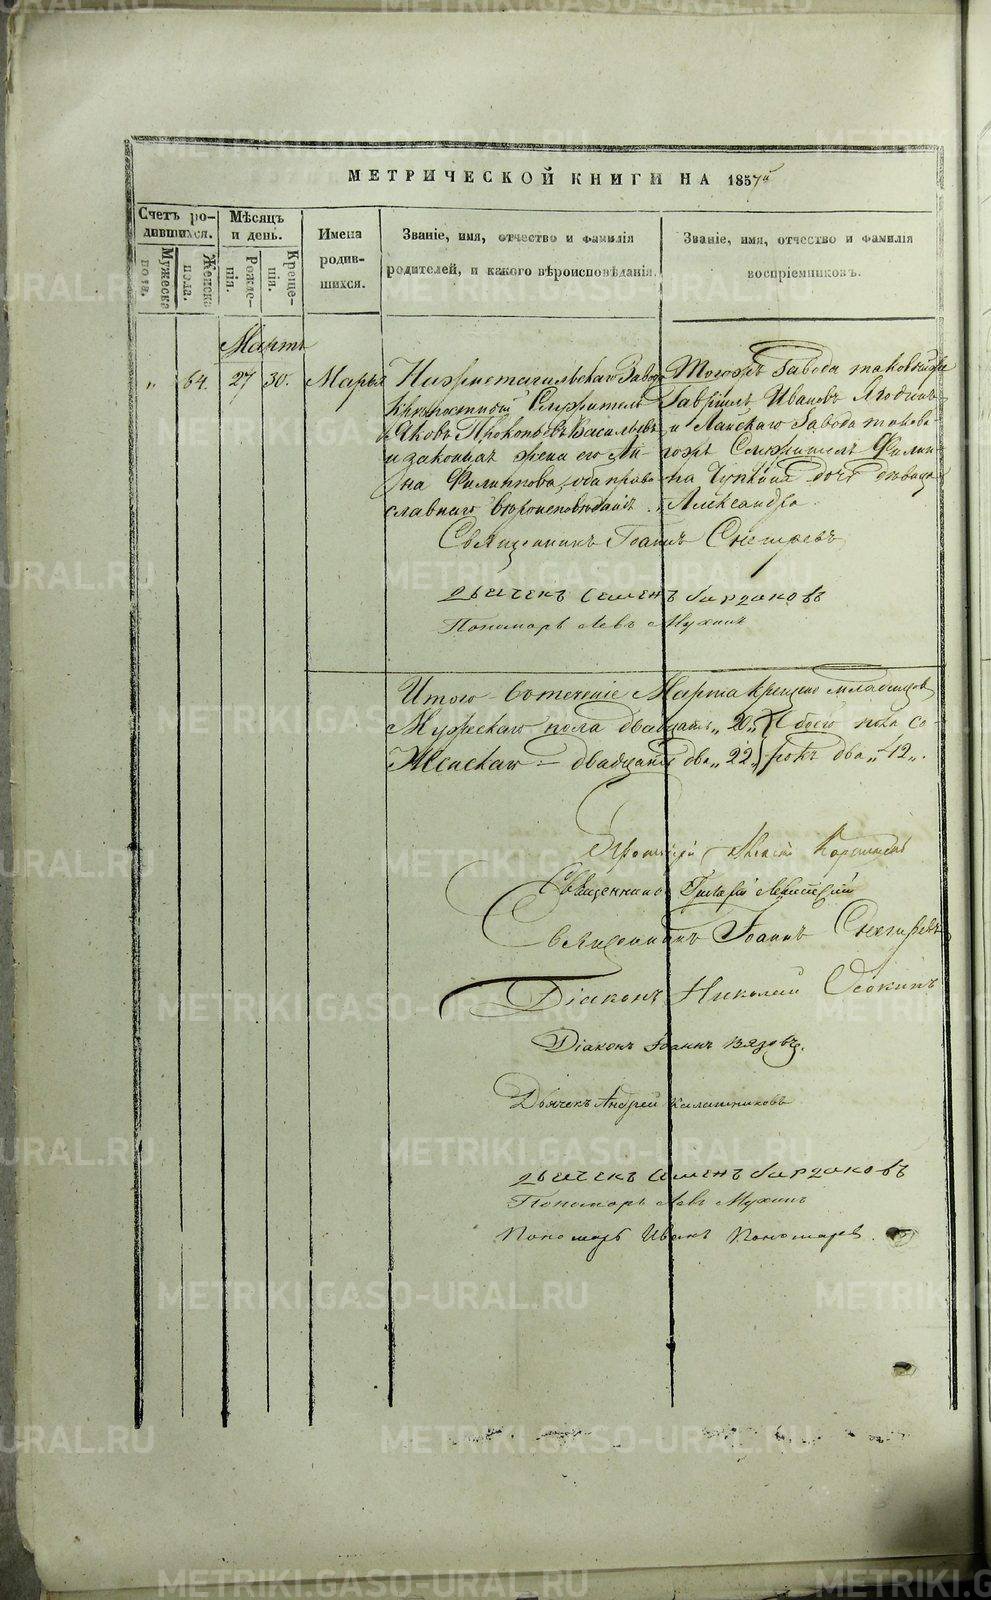 МЕТРИЧЕСКОЙ КНИГИ НА 1857й
Счетъ родившихся.
Мѣсяцъ и день.
Имена родившихся.
Званіе, имя, отчество и фамилія родителей, и какого вѣроисповѣданія.
Званіе, имя, отчество и фамилія воспріемниковъ.
Мужеска пола.
Женска пола.
Рожденія.
Крещенія.
Мартъ
„ 64. 27 30. Марья
Нижнетагильскаго Завода
крѣпостный Служитель
Яковъ Прокопьевъ Васильевъ
и законная жена его Ан-
на Филиппова, оба право-
славнаго вѣроисповѣданія.
Тогожъ Завода таковый же
Гавріилъ Ивановъ Ягодинъ
и Лайскаго Завода таково-
гожъ Служителя Филип-
па дочь дѣвица
Александра.
Священникъ Іоаннъ Снегиревъ
Дьячекъ Семенъ
Пономарь Левъ Мухинъ
Итого въ теченіе Марта крещено младенцовъ
Мужескаго пола двадцать „20„ Обоего пола со-
Женскаго – двадцать два „22„ рокъ два „42„.
Протоіерей
Священникъ
Священникъ Іоаннъ Снегиревъ
Діаконъ Николай Осокинъ
Діаконъ Іоаннъ Вязовъ.
Дьячекъ Андрей Калашниковъ
Дьячекъ Семенъ
Пономарь Левъ Мухинъ
Пономарь Иванъ Пономаревъ.
METRIKI.GASO-URAL.RU